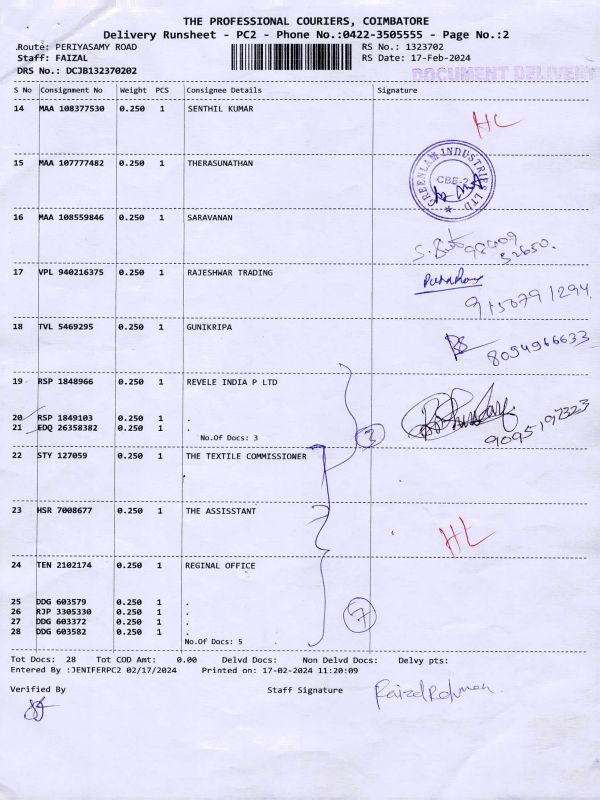 THE PROFESSIONAL COURIERS, COIMBATORE
Delivery Runsheet - PC2 - Phone No.:0422-3505555 - Page No.:2
Route: PERIYASAMY ROAD RS No.: 1323702
Staff: FAIZAL RS Date: 17-Feb-2024
DRS No.: DCJB132370202 DOCUMENT DELIVERY
S No Consignment No Weight PCS Consignee Details Signature
14 MAA 108377530 0.250 1 SENTHIL KUMAR
HL
15 MAA 107777482 0.250 1 THERASUNATHAN
GREENLAM INDUSTRIES LTD
CBE-2
16 MAA 108559846 0.250 1 SARAVANAN
98409
52650.
17 VPL 940216375 0.250 1 RAJESHWAR TRADING
9150791294
18 TVL 5469295 0.250 1 GUNIKRIPA
8094966633
19 RSP 1848966 0.250 1 REVELE INDIA P LTD
20 RSP 1849103 0.250 1 .
21 EDQ 26358382 0.250 1 .
No.Of Docs: 3
3
9095197323
22 STY 127059 0.250 1 THE TEXTILE COMMISSIONER
23 HSR 7008677 0.250 1 THE ASSISSTANT
HL
24 TEN 2102174 0.250 1 REGINAL OFFICE
25 DDG 603579 0.250 1 .
26 RJP 3305330 0.250 1 .
27 DDG 603372 0.250 1 .
28 DDG 603582 0.250 1 .
No.Of Docs: 5
7
Tot Docs: 28 Tot COD Amt: 0.00 Delvd Docs: Non Delvd Docs: Delvy pts:
Entered By :JENIFERPC2 02/17/2024 Printed on: 17-02-2024 11:20:09
Verified By Staff Signature